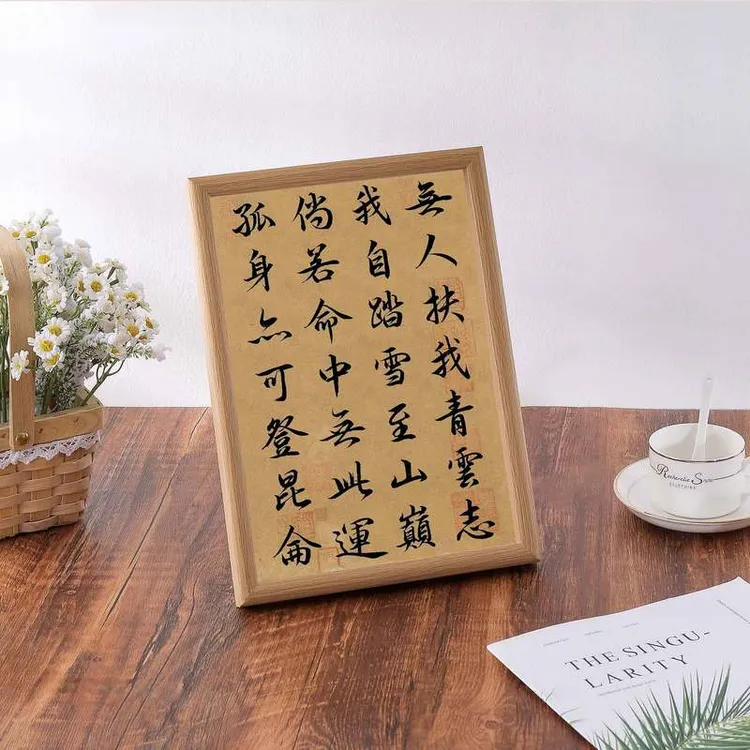 無人扶我青雲志
我自踏雪至山巔
倘若命中無此運
孤身亦可登昆侖
THE SINGU-
LARITY